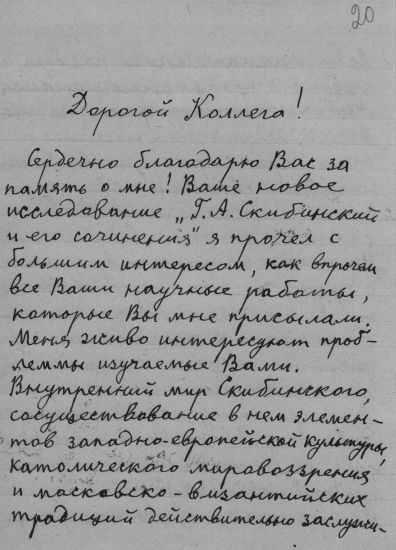 20
Дорогой Коллега!
Сердечно благодарю Вас за
память о мне! Ваше новое
исследование „Г. А. Скибинский
и его сочинения" я прочел с
большим интересом, как впрочем
все Ваши научные работы,
которые Вы мне присылали.
Меня живо интересуют проб-
леммы изучаемые Вами.
Внутренний мир Скибинского,
сосуществование в нем элемен-
тов западно-европейской культуры,
католического мировоззрения
и московско-византийских
традиций действительно заслужи-